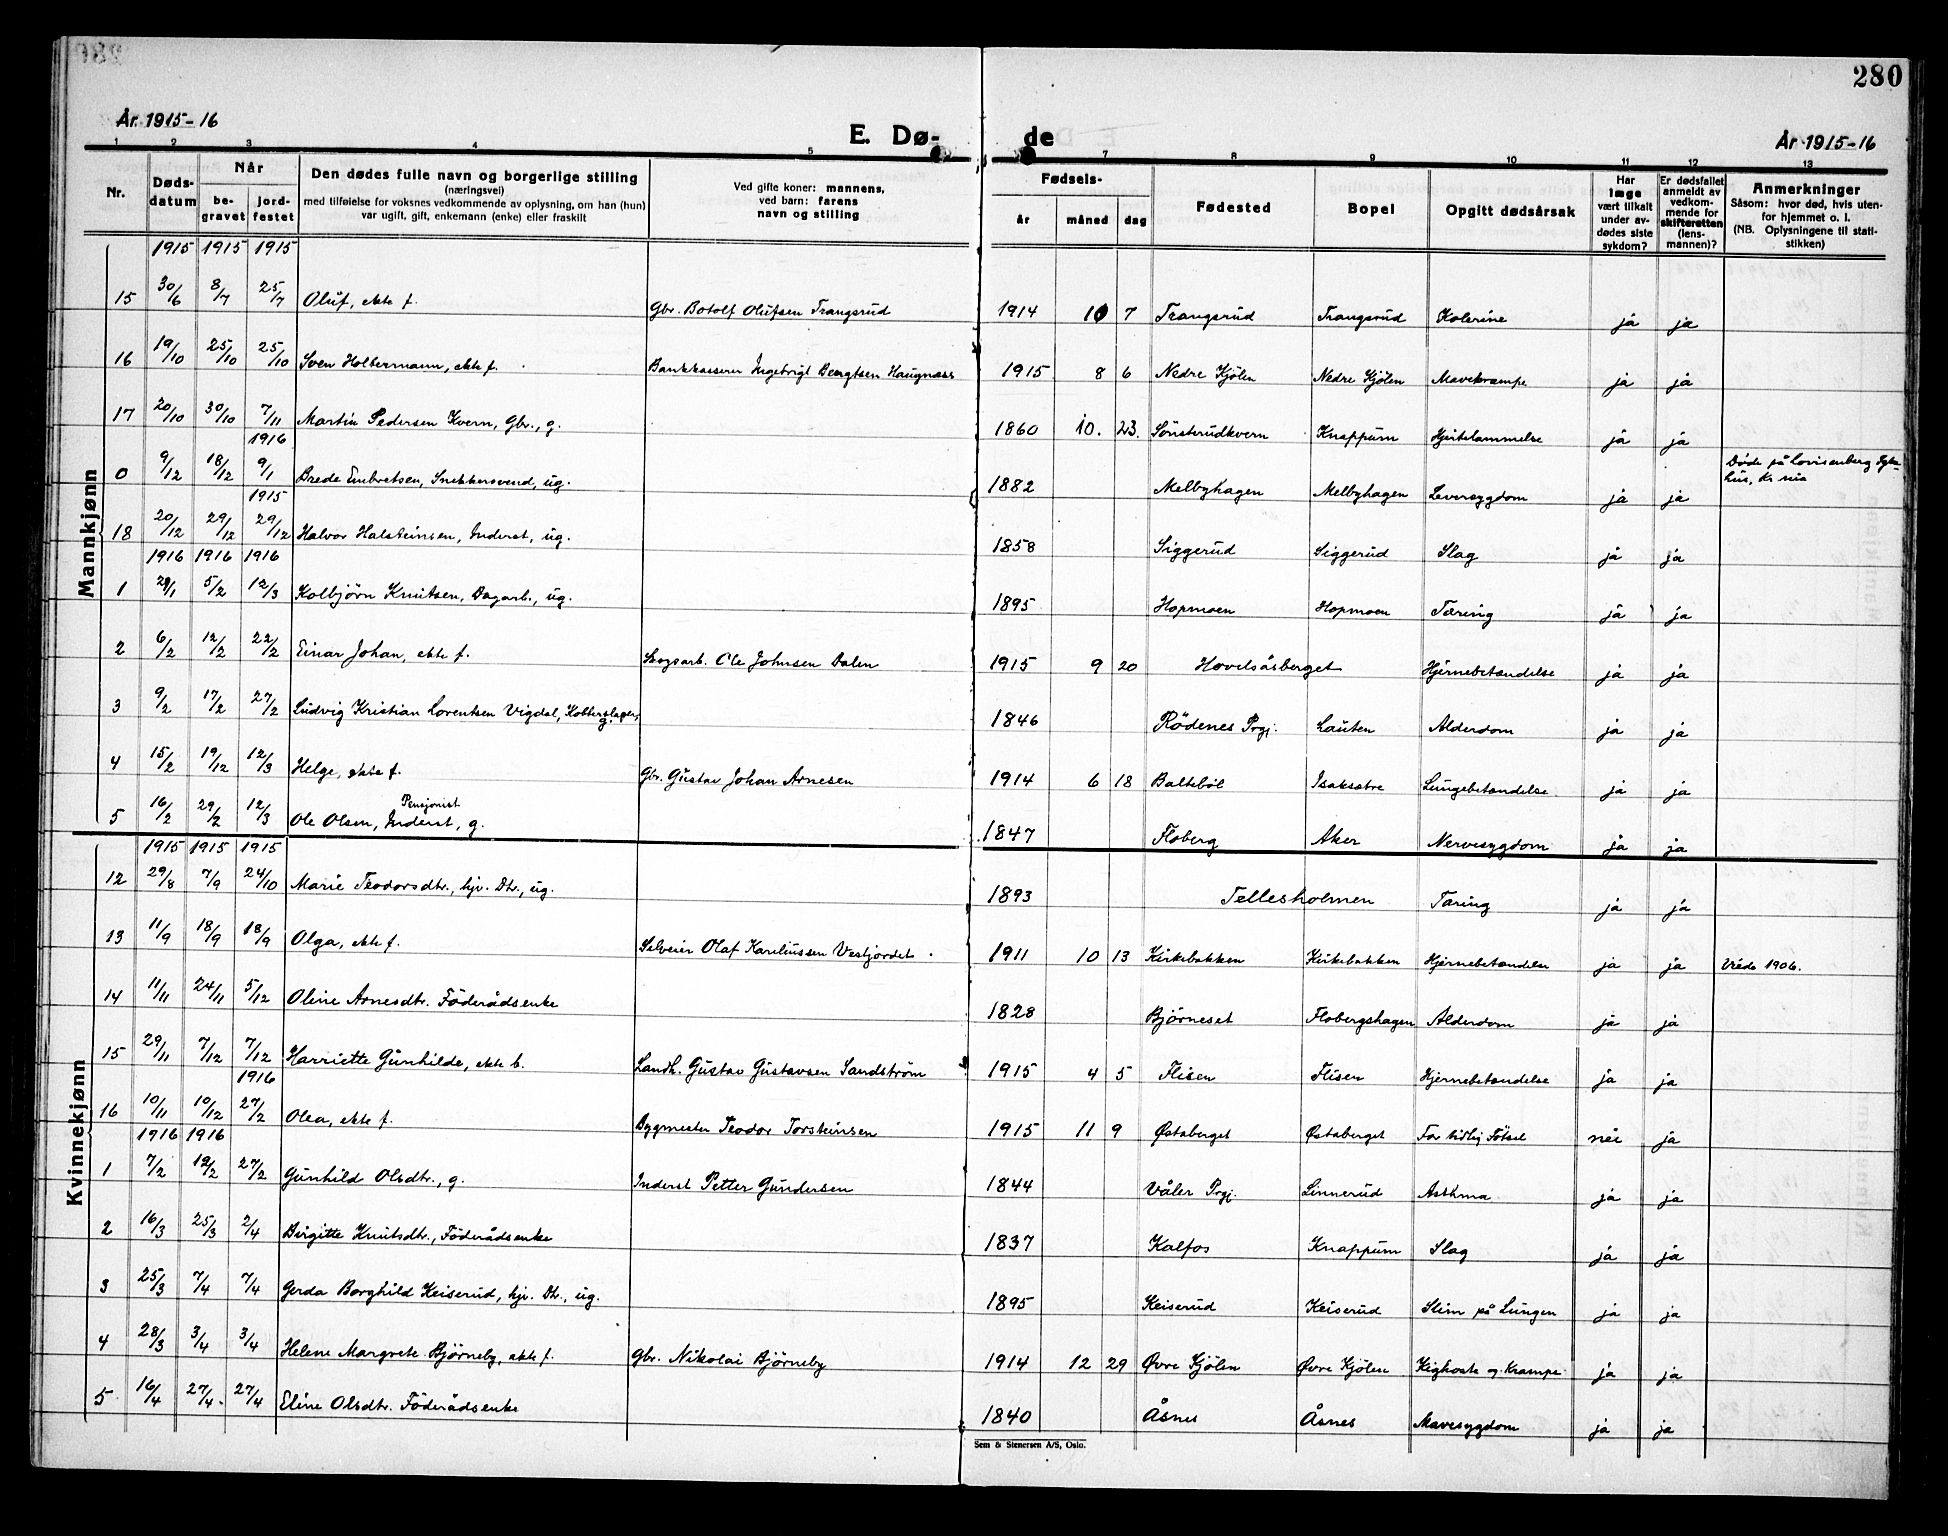 280
År 1915-16
E. Dø- de
År 1915-16
1 2 3 4 5 7 8 9 10 11 12 13
Nr. Døds-datum Når be-gravet jord-festet Den dødes fulle navn og borgerlige stilling (næringsvei) med tilføielse for voksnes vedkommende av oplysning, om han (hun) var ugift, gift, enkemann (enke) eller fraskilt Ved gifte koner: mannens, ved barn: farens navn og stilling Fødsels- år måned dag Fødested Bopel Opgitt dødsårsak Har læge vært tilkalt under av-dødes siste sykdom? Er dødsfallet anmeldt av vedkom-mende for skifteretten (lens-mannen)? Anmerkninger Såsom: hvor død, hvis uten-for hjemmet o. l. (NB. Oplysningene til stati-stikken)
Mannkjønn
1915 1915 1915
15 30/6 8/7 25/7 Oluf, ekte f. Gbr. Botolf Olufsen Trangsrud 1914 10 7 Trangsrud Trangsrud Kolerine ja ja
16 19/10 25/10 25/10 Sven Holtermann, ekte f. Bankkasserer Ingebrigt Bergtsen Haugnæss 1915 8 6 Nedre Kjölen Nedre Kjölen Mavekrampe ja ja
17 20/10 30/10 7/11 Martin Pedersen Kvern, Gbr., g. 1860 10. 23. Sönsterudkvern Knappum Hjertelammelse ja ja
1916
0 9/12 18/12 9/1 Brede Embretsen, Snekkersvend, ug. 1882 Melbyhagen Melbyhagen Leversygdom ja ja Døde på Lovisenberg Syke-hus, Kr.nia
1915
18 20/12 29/12 29/12 Halvor Halsteinsen, Inderst, ug. 1858 Siggerud Siggerud Slag ja ja
1916 1916 1916
1 29/1 5/2 12/3 Kolbjörn Knutsen, Dagarb., ug. 1895 Hopmoen Hopmoen Tæring ja ja
2 6/2 12/2 22/2 Einar Johan, ekte f. Skogsarb. Ole Johnsen Dalen 1915 9 20 Hovelsåsberget Hjernebetændelse ja ja
3 9/2 17/2 27/2 Ludvig Kristian Lorentsen Vigdal, Kobberslager, g. 1846 Rödenes Prgj. Lauten Alderdom ja ja
4 15/2 19/12 12/3 Helge, ekte f. Gbr. Gustav Johan Arnesen 1914 6 18 Balteböl Isaksætre Lungebetændelse ja ja
Pensjonist
5 16/2 29/2 12/3 Ole Olsen, Inderst, g. 1847 Floberg Aker Nervesygdom ja ja
Kvinnekjønn
1915 1915 1915
12 29/8 7/9 24/10 Marie Teodorsdtr., hjv. Dtr., ug. 1893 Tellesholmen Tæring ja ja
13 11/9 18/9 18/9 Olga, ekte f. Selveier Olaf Kareliussen Vestjordet. 1911 10 13 Kirkebakken Kirkebakken Hjernebetændelse ja ja Viede 1906.
14 11/11 24/11 5/12 Oline Arnesdtr. Föderådsenke 1828 Björneset Flobergshagen Alderdom ja ja
15 29/11 7/12 7/12 Harriette Gunhilde, ekte b. Landh. Gustav Gustavsen Sandström 1915 4 5 Flisen Flisen Hjernebetændelse ja ja
1916
16 10/11 10/12 27/2 Olea, ekte f. Bygmester Teodor Torsteinsen 1915 11 9 Østaberget Østaberget For tidlig Fötsel nei ja
1916 1916
1 7/2 19/2 27/2 Gunhild Olsdtr., g. Inderst Petter Gundersen 1844 Våler Prgj. Linnerud Asthma ja ja
2 16/3 25/3 2/4 Birgitte Knutsdtr., Föderådsenke 1837 Kalfos Knappum Slag ja ja
3 25/3 7/4 7/4 Gerda Borghild Keiserud, hjv. Dtr., ug. 1895 Keiserud Keiserud Slim på Lungen ja ja
4 28/3 3/4 3/4 Helene Margrete Björneby, ekte f. Gbr. Nikolai Björneby 1914 12 29 Øvre Kjölen Øvre Kjölen Kighoste og Krampe ja ja
5 16/4 27/4 27/4 Eline Olsdtr. Föderådsenke 1840 Åsnes Åsnes Mavesygdom ja ja
Sem & Stenersen A/S, Oslo.